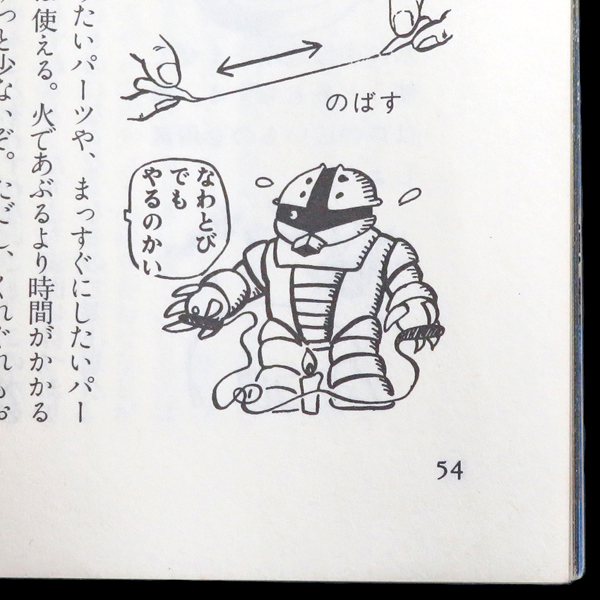 のばす
なわとび
でも
やるのかい
たいパーツや、まっすぐにしたいパー
使える。火であぶるより時間がかかる
54